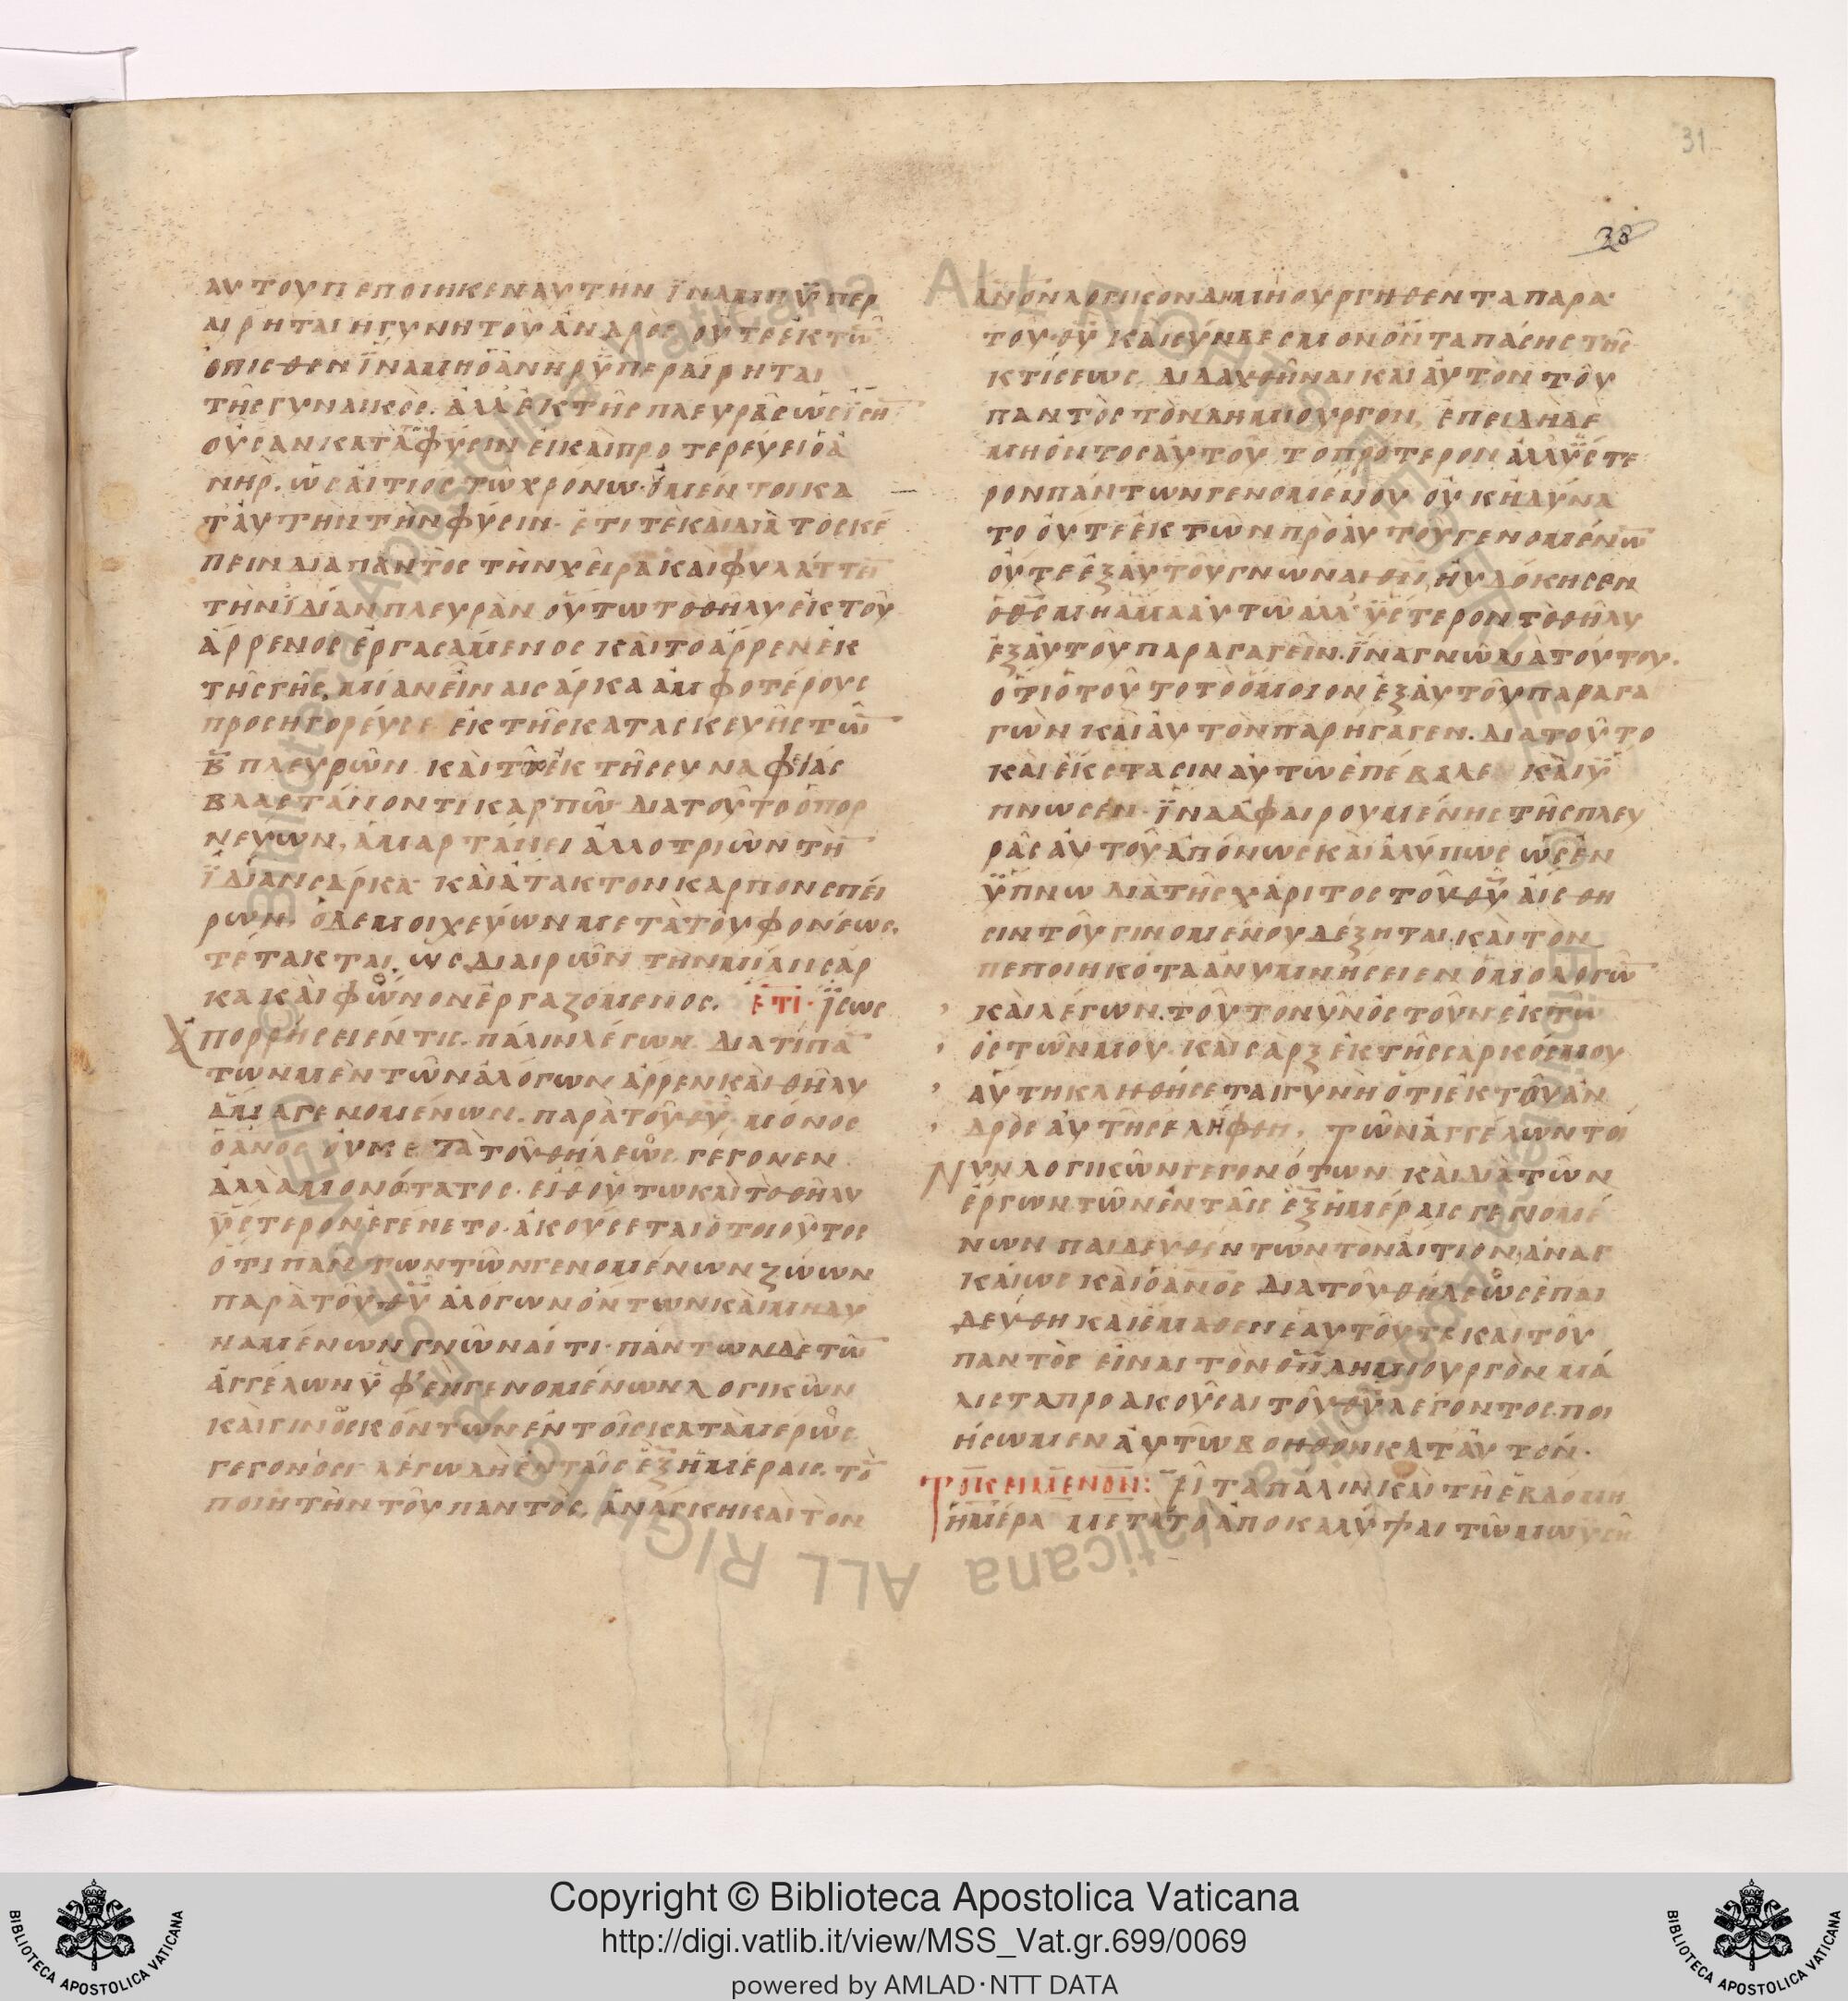 31
38
αυτου πεποιηκεν αυτην ϊνα μη ϋπερ
αιρηται η γυνη τοῦ ἀνδρὸς οὔτε ἐκ τῶ̅
ὄπισθεν ϊνα μὴ ὁ ἀνὴρ ϋπεραίρηται
τῆς γυναικὸς. ἀλλ' ἐκ τῆς πλευρᾶς ὡς ϊση̅
οὖσαν κατὰ φύσιν εἰ καὶ προτερεύει ὁ ἀ
νήρ. ὡς αἴτιος τῶ χρόνω. ὅμεν τοι κα
τ' αὐτὴν τὴν φύσιν. ἔτι τὲ καὶ διὰ τὸ σκέ
πειν διαπαντὸς τὴν χεῖρα καὶ φυλάττει̅
τὴν ϊδίαν πλευρὰν οὕτω τὸ θῆλυ ἐκ τοῦ
ἄρρενος ἐργασάμενος καὶ το ἄρρεν ἐκ
τῆς γῆς, μίαν εἶναι σάρκα ἀμφοτέρους
προσηγόρευσε ἐκ τῆς κατασκευῆς τῶ̅
β̅ πλευρῶν καὶ τοῦ ἐκ τῆς συναφείας
βλαστάνοντι καρπῶ διατοῦτο ὁ πορ
νεύων, ἁμαρτάνει ἀλλοτριῶν τὴ̅
ϊδίαν σάρκα καὶ ἄτακτον καρπὸν σπεί
ρων. ὁ δὲ μοιχεύων μετὰ τοῦ φονέως.
τέτακται, ὡς διαιρῶν τὴν μίαν σάρ
κα καὶ φῶνον ἐργαζόμενος. ἔτι. ϊσως
Χ πορρήσειέν τις πάλιν λέγων. διατί πά̅
των μὲν τῶν ἀλόγων ἄρρεν καὶ θῆλυ
ἅμα γενομένων. παρὰ τοῦ θ̅υ̅ μόνος
ὁ α̅ν̅ο̅ς̅ οὐ μετὰ τοῦ θήλεως γέγονεν
ἀλλὰ μονότατος. εἶθ' οὕτω καὶ τὸ θῆλυ
ϋστερον ἐγένετο. ἀκούσεται ὁ τοιοῦτος
ὅτι πάντων τῶν γενομένων ζώων
παρὰ τοῦ θ̅υ̅ ἀλόγων ὄντων καὶ μὴ δυ
ναμένων γνῶναί τι. πάντων δὲ τῶ̅
ἀγγέλων ϋφ' ἓν γενομένων λογικῶν
καὶ γινωσκόντων ἐν τοῖς κατὰ μέρως
γεγονόσι λέγω δὴ ἐν ταῖς ἓξ ἡμέραις. τὸ̅
ποιητὴν τοῦ παντὸς, ἀνάγκη καὶ τὸν
α̅ν̅ο̅ν̅ λογικὸν δημιουργηθέντα παρὰ
τοῦ θ̅υ̅ καὶ σύνδεσμον ὄντα πάσης τῆς
κτίσεως, διδαχθῆναι καὶ αὐτὸν τοῦ
παντὸς τὸν δημιουργόν, ἐπειδὴ δὲ
μὴ ὄντος αὐτοῦ τοπρότερον ἀλλ' ϋστε
ρον πάντων γενομένου οὐκ ἠδύνα
το οὔτε ἐκ τῶν πρὸ αὐτοῦ γενομένω̅
οὔτε ἐξ αὐτοῦ γνῶναι θ̅ν̅, ηὐδόκησεν
ὁ θ̅ς̅ μὴ ἅμα αὐτῶ ἀλλ' ϋστερον τὸ θῆλυ
ἐξ αὐτοῦ παραγαγεῖν. ϊνα γνῶ διὰ τούτου.
ὅτι ὁ τοῦτο τὸ ὅμοιον ἐξ αὐτοῦ παραγα
γὼν καὶ αὐτὸν παρήγαγεν. διατοῦτο
καὶ ἔκστασιν αὐτῶ ἐπέβαλεν καὶ ϋ
πνωσεν. ϊνα ἀφαιρουμένης τῆς πλευ
ρᾶς αὐτοῦ ἀπόνως καὶ ἀλύπως ὡς ἐν
ϋπνω διὰ τῆς χάριτος τοῦ θ̅υ̅ αἴσθη
σιν τοῦ γινομένου δέξηται, καὶ τὸν
πεποιηκότα ἀνυμνήσειεν ὁμολογῶ̅
καὶ λέγων. τοῦτο νῦν ὀστοῦν ἐκ τῶ̅
ὀστῶν μου. καὶ σαρξ ἐκ τῆς σαρκός μου
αὕτη κληθήσεται γυνὴ ὅτι ἐκ τοῦ ἀν
δρὸς αὐτῆς ἐλήφθη, τῶν ἀγγέλων τοί
Νυν λογικῶν γεγονότων καὶ διὰ τῶν
ἔργων τῶν ἐν ταῖς ἓξ ἡμέραις γενομέ
νων παιδευθέντων τὸν αἴτιον, ἀναγ
καίως καὶ ὁ α̅ν̅ο̅ς̅ διὰ τοῦ θήλεως ἐπαι
δεύθη καὶ ἔμαθεν ἑαυτοῦ τε καὶ τοῦ
παντὸς εἶναι τὸν θ̅ν̅ δημιουργὸν μά
λιστα προακοῦσαι τοῦ θ̅υ̅ λέγοντος. ποι
ήσωμεν αὐτῶ βοηθὸν κατ' αὐτόν.
Τὸ κείμενον: Εἶτα πάλιν καὶ τῆ ἑβδόμη
ἡμέρα μετὰ τὸ ἀποκαλύψαι τῶ μωϋσῆ
Copyright © Biblioteca Apostolica Vaticana
http://digi.vatlib.it/view/MSS_Vat.gr.699/0069
powered by AMLAD·NTT DATA
BIBLIOTECA APOSTOLICA VATICANA
BIBLIOTECA APOSTOLICA VATICANA